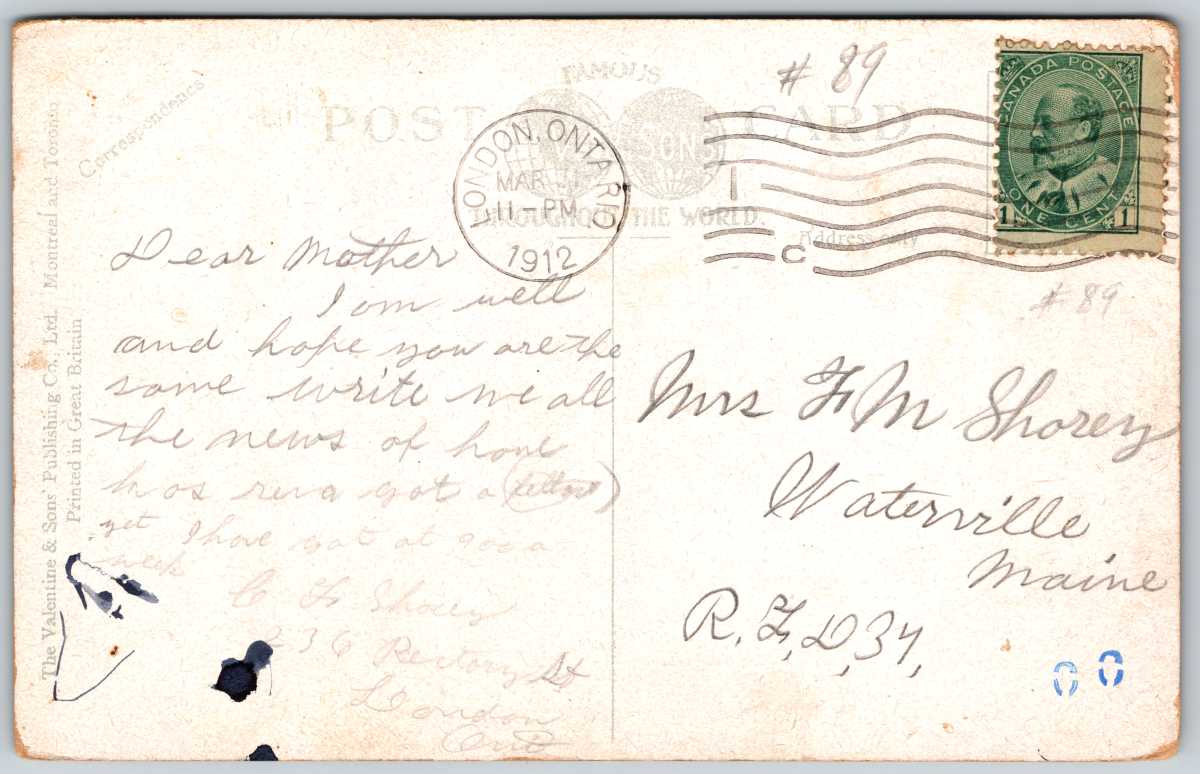 # 89
FAMOUS
POST CARD
SONS
THROUGHOUT THE WORLD.
Correspondence
Address Only
LONDON, ONTARIO
MAR
11-PM
1912
C
CANADA POSTAGE
1 ONE CENT 1
# 89
Dear Mother
I am well
and hope you are the
same write me all
the news of home
has reva got a (letter)
yet I have got at 900 a
week
C F Shorey
236 Rectory St
London
Ont
Mrs F M Shorey
Waterville
Maine
R.F.D. 37.
0 0
The Valentine & Sons' Publishing Co., Ltd. Montreal and Toronto
Printed in Great Britain